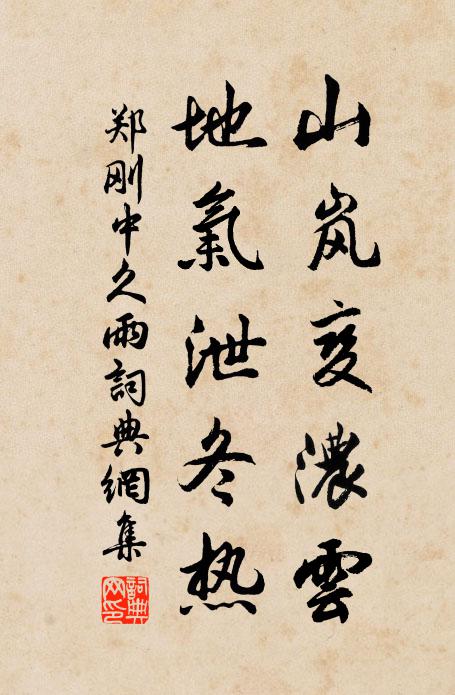 山岚变濃雲
地氣泄冬热
郑刚中久雨詞典網集
詞典網印